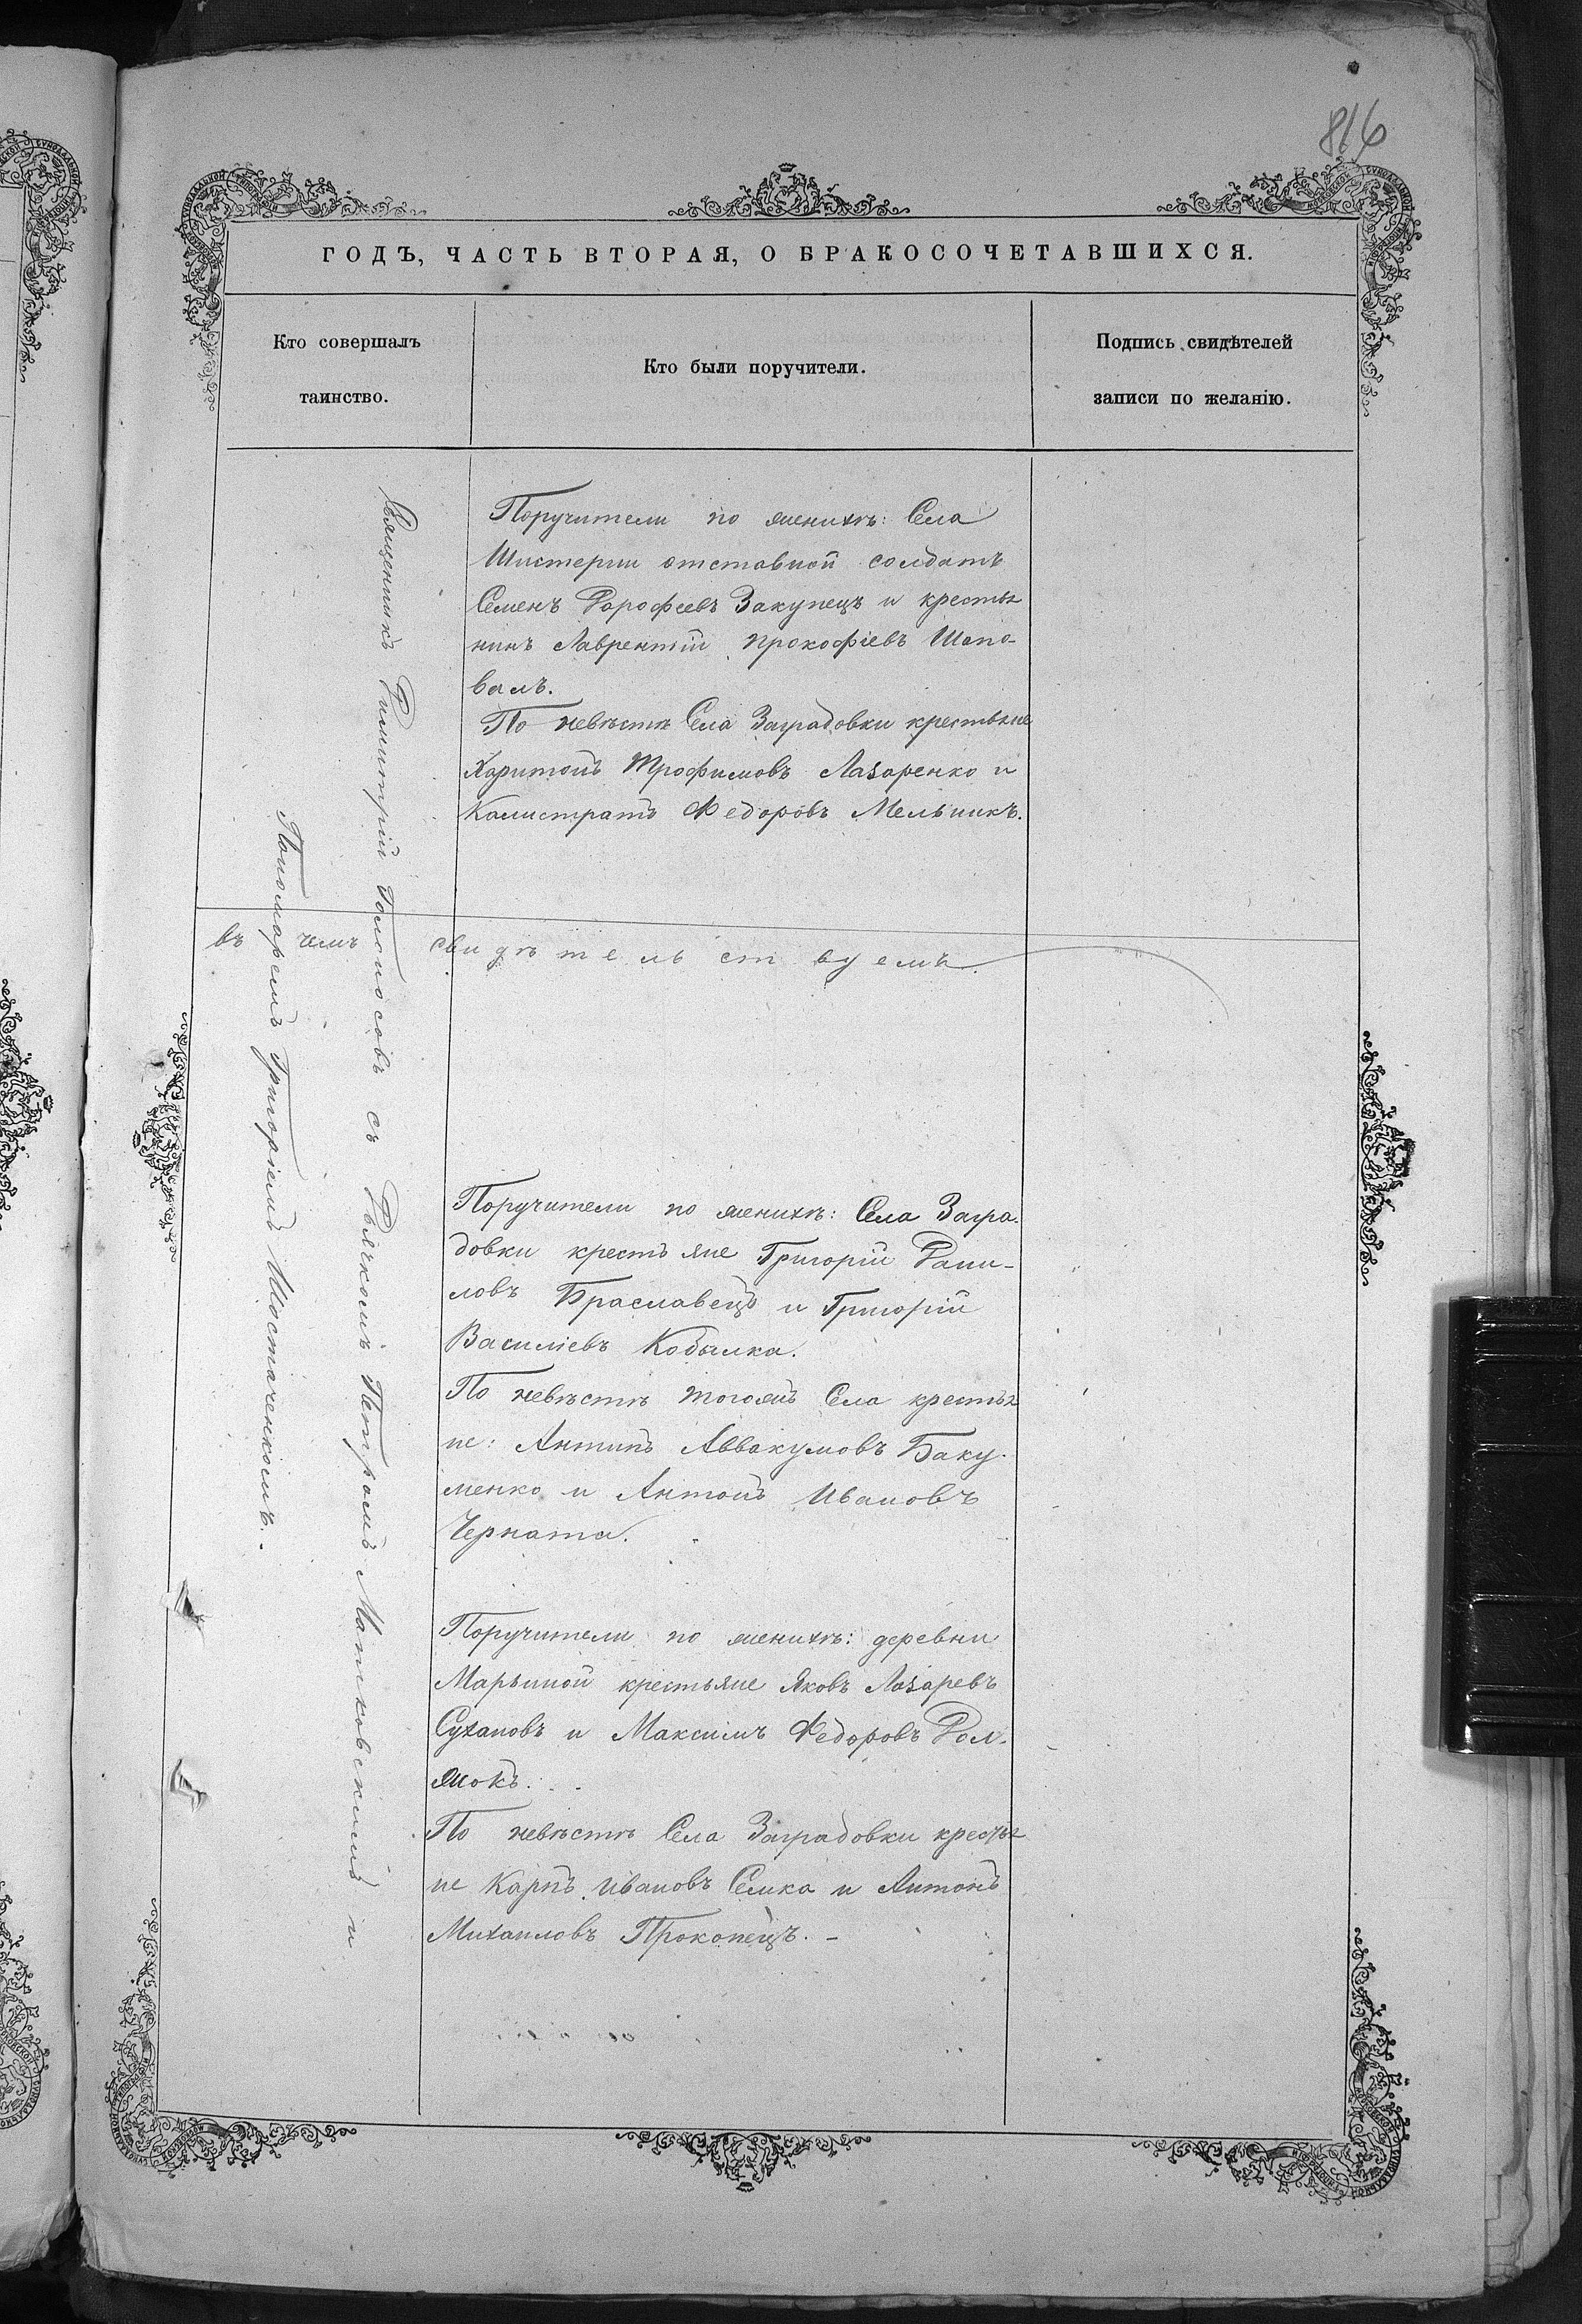 816
ГОДЪ, ЧАСТЬ ВТОРАЯ, О БРАКОСОЧЕТАВШИХСЯ.
Кто совершалъ
таинство.
Кто были поручители.
Подпись свидѣтелей
записи по желанію.
Священникъ Димитрій Голоносовъ съ Дьячкомъ Петромъ Матковскимъ и
Пономаремъ Григоріемъ Шостаченкомъ.
Поручители по женихѣ: Села
Шистерни отставной солдатъ
Семенъ Дорофеевъ Закупецъ и крестья
нинъ Лаврентій Прокофіевъ Шапо-
валъ.
По невѣстѣ Села Заградовки крестьяне
Харитонъ Трофимовъ Лазаренко и
Калистратъ Федоровъ Мельникъ.
въ чемъ свидѣтельствуемъ.
Поручители по женихѣ: Села Загра-
довки крестьяне Григорій Дани-
ловъ Браславецъ и Григорій
Василіевъ Кобылка.
По невѣстѣ тогожъ Села крестья
не: Антипъ Аввакумовъ Баку-
менко и Антонъ Ивановъ
Черната.
Поручители по женихѣ: деревни
Марьиной крестьяне Яковъ Лазаревъ
Сухановъ и Максимъ Федоровъ Дол-
жокъ.
По невѣстѣ Села Заградовки крестья
не Карпъ Ивановъ Семка и Антонъ
Михаиловъ Прокопецъ. -